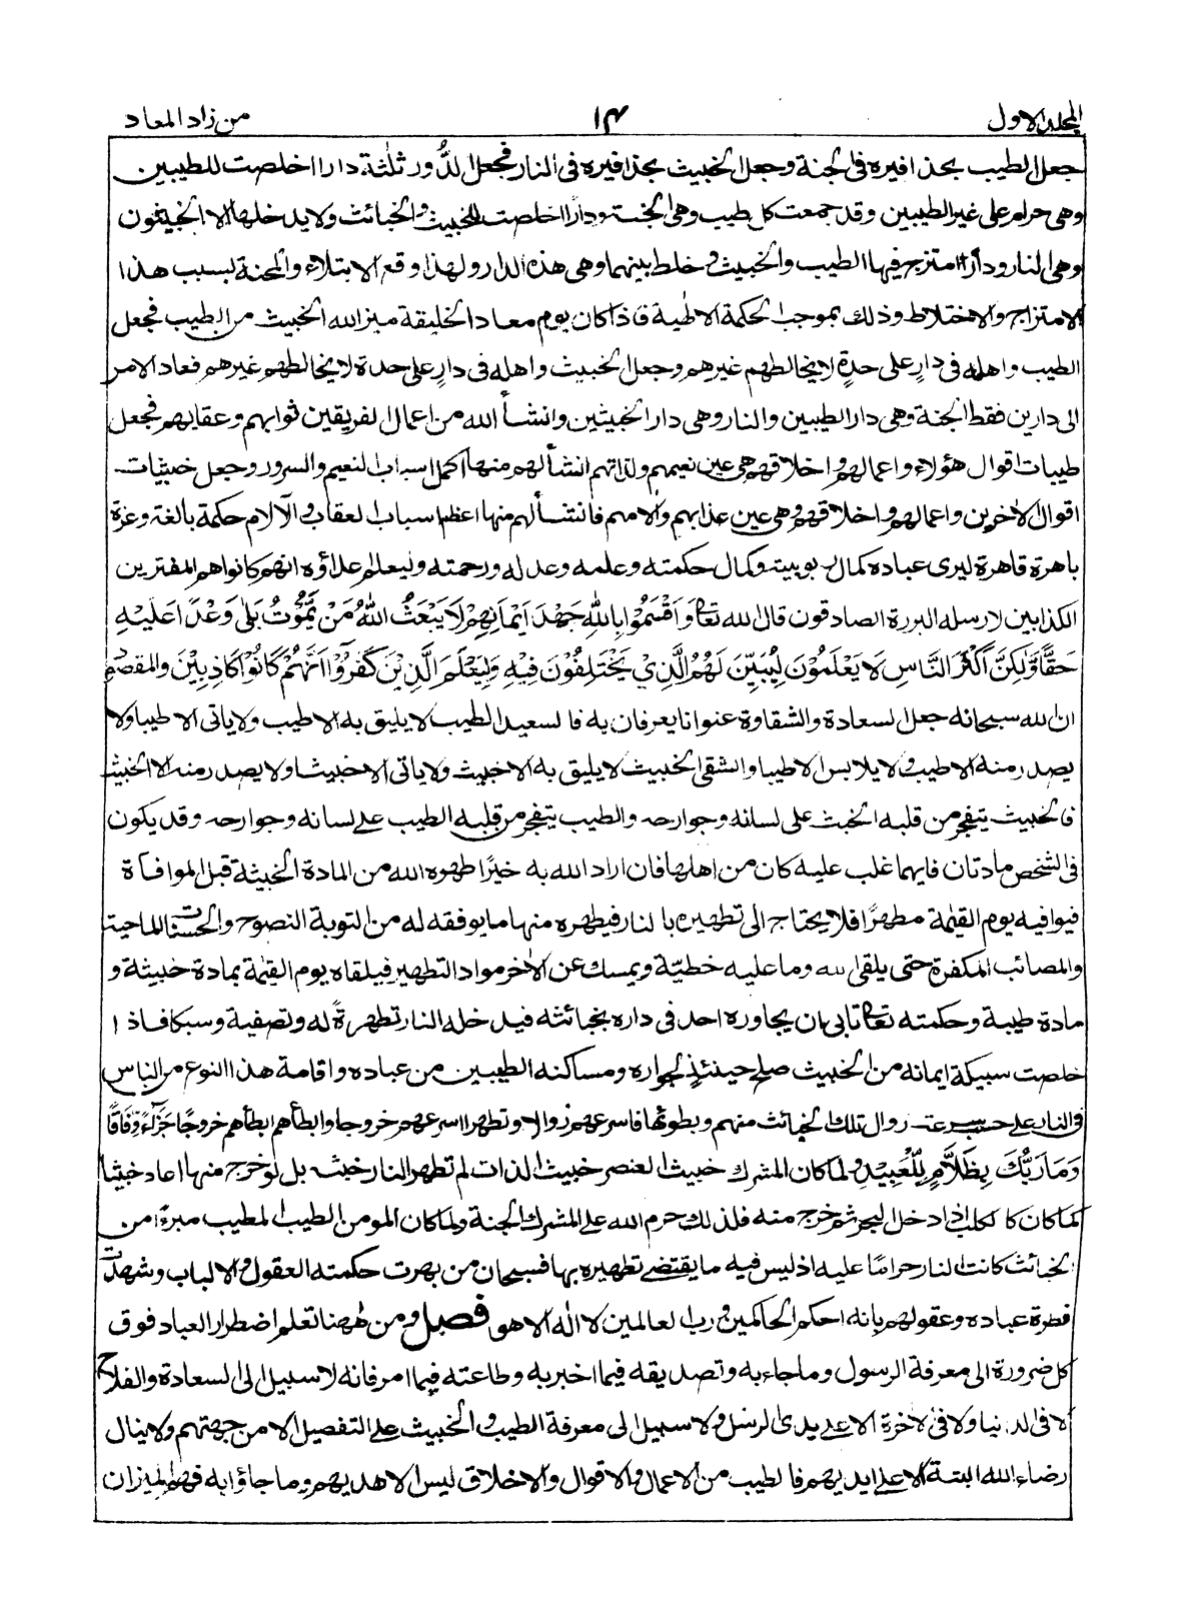 المجلد الاول
١٤
من زاد المعاد
جعل الطيب بحذافيره فى الجنة وجعل الخبيث بحذافيره فى النار فجعل الدُّور ثلٰثة دارا اخلصت للطيبين
وهى حرام على غير الطيبين وقد جمعت كل طيب وهى الجنة ودارًا اخلصت للخبيث والخبائث ولا يدخلها الا الخبيثون
وهى النار ودارًا امتزج فيها الطيب والخبيث وخلط بينهما وهى هذه الدار ولهذا وقع الابتلاء والمحنة بسبب هذا
الامتزاج والاختلاط وذلك بموجب الحكمة الالٰهية فاذا كان يوم معاد الخليقة ميز الله الخبيث من الطيب فجعل
الطيب واهله فى دارٍ على حدةٍ لا يخالطهم غيرهم وجعل الخبيث واهله فى دارٍ على حدة لا يخالطهم غيرهم فعاد الامر
الى دارين فقط الجنة وهى دار الطيبين والنار وهى دار الخبيثين وانشأ الله من اعمال الفريقين ثوابهم وعقابهم فجعل
طيبات اقوال هؤلاء واعمالهم واخلاقهم هى عين نعيمهم ولذاتهم انشأ لهم منها اكمل اسباب النعيم والسرور وجعل خبيثات
اقوال الاٰخرين واعمالهم واخلاقهم وهى عين عذابهم واٰلامهم فانشأ لهم منها اعظم اسباب العقاب والآلام حكمة بالغة وعزة
باهرة قاهرة ليرى عباده كمال ربوبيته وكمال حكمته وعلمه وعدله ورحمته وليعلم اعداؤه انهم كانوا هم المفترين
الكذابين لا رسله البررة الصادقون قال الله تعالى وَاَقْسَمُوْا بِاللّٰهِ جَهْدَ اَيْمَانِهِمْ لَا يَبْعَثُ اللّٰهُ مَنْ يَّمُوْتُ بَلٰى وَعْدًا عَلَيْهِ
حَقًّا وَّلٰكِنَّ اَكْثَرَ النَّاسِ لَا يَعْلَمُوْنَ لِيُبَيِّنَ لَهُمُ الَّذِيْ يَخْتَلِفُوْنَ فِيْهِ وَلِيَعْلَمَ الَّذِيْنَ كَفَرُوْٓا اَنَّهُمْ كَانُوْا كَاذِبِيْنَ والمقصود
ان الله سبحانه جعل السعادة والشقاوة عنوانا يعرفان به فالسعيد الطيب لا يليق به الا طيب ولا ياتى الا طيبا ولا
يصدر منه الا طيب ولا يلابس الا طيبا والشقى الخبيث لا يليق به الا خبيث ولا ياتى الا خبيثا ولا يصدر منه الا الخبيث
فالخبيث يتفجر من قلبه الخبث على لسانه وجوارحه والطيب يتفجر من قلبه الطيب على لسانه وجوارحه وقد يكون
فى الشخص مادتان فايهما غلب عليه كان من اهلها فان اراد الله به خيرًا طهره الله من المادة الخبيثة قبل الموافاة
فيوافيه يوم القيٰمة مطهرًا فلا يحتاج الى تطهيره بالنار فيطهره منها ما يوفقه له من التوبة النصوح والحسنات الماحية
والمصائب المكفرة حتى يلقى الله وما عليه خطيّة ويمسك عن الاٰخر مواد التطهير فيلقاه يوم القيٰمة بمادة خبيثة و
مادة طيبة وحكمته تعالى تابى ان يجاوره احد فى داره بخبائثه فيدخله النار تطهرةً له وتصفية وسبكا فاذا
خلصت سبيكة ايمانه من الخبيث صلح حينئذٍ لجواره ومساكنه الطيبين من عباده واقامة هذا النوع من الناس
فى النار على حسب سرعة زوال تلك الخبائث منهم وبطوئها فاسرعهم زوالا وتطهرا اسرعهم خروجا وابطأهم ابطأهم خروجًا جَزَآءً وِّفَاقًا
وَمَا رَبُّكَ بِظَلَّامٍ لِّلْعَبِيْدِ ولما كان المشرك خبيث العنصر خبيث الذات لم تطهر النار خبثه بل لو خرج منها لعاد خبيثا
كما كان كالكلب اذا دخل البحر ثم خرج منه فلذلك حرم الله على المشرك الجنة ولما كان المومن الطيب المطيب مبرءً من
الخبائث كانت النار حرامًا عليه اذ ليس فيه ما يقتضى تطهيره بها فسبحان من بهرت حكمته العقول والالباب وشهدت
فطرة عباده وعقولهم بانه احكم الحاكمين ورب العالمين لا اله الا هو فصل ومن ههنا تعلم اضطرار العباد فوق
كل ضرورة الى معرفة الرسول وما جاء به وتصديقه فيما اخبر به وطاعته فيما امر فانه لا سبيل الى السعادة والفلاح
لا فى الدنيا ولا فى الاخرة الا على يدى الرسل ولا سبيل الى معرفة الطيب والخبيث على التفصيل الا من جهتهم ولا ينال
رضاء الله البتة الا على ايديهم فالطيب من الاعمال والاقوال والاخلاق ليس الا هديهم وما جاؤا به فهم الميزان